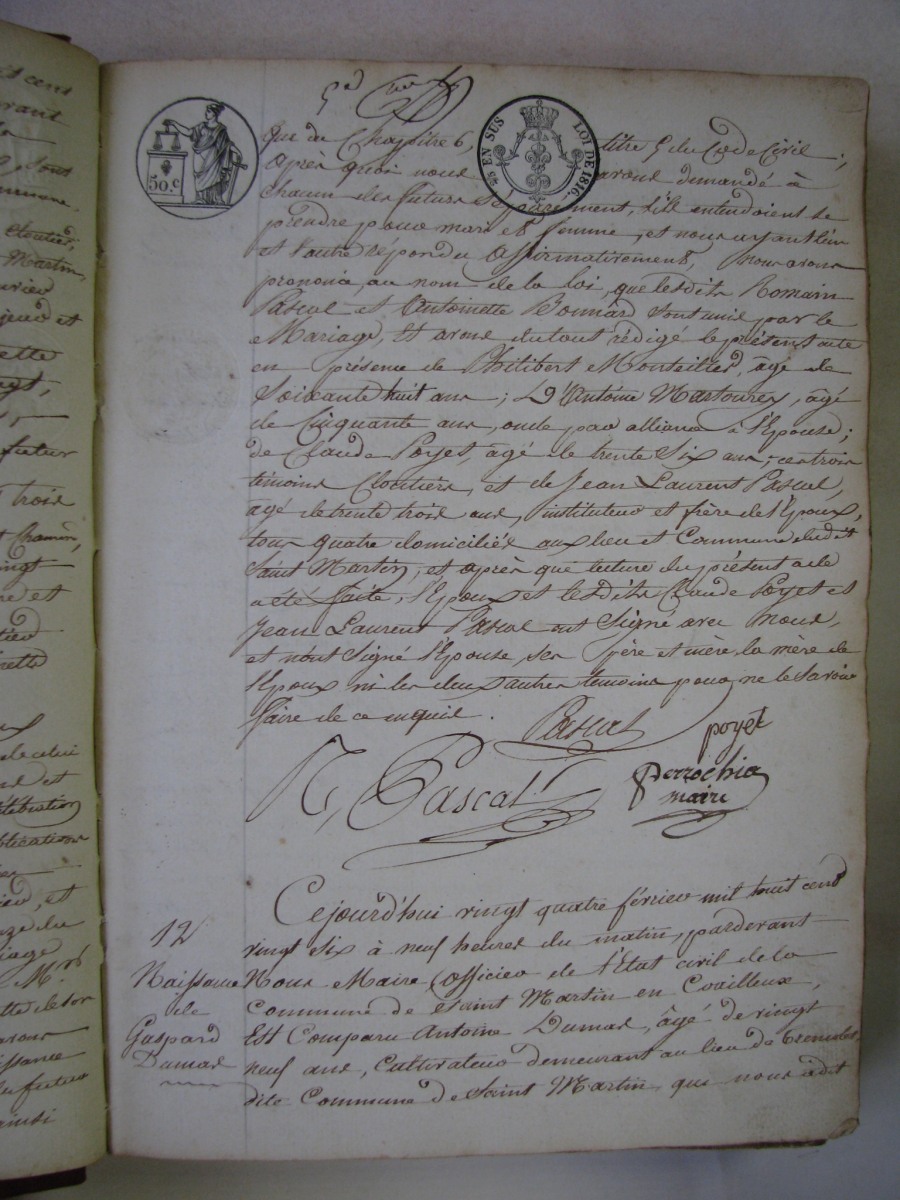 5e
50.c
EN SUS
LOI DE 1816.
que du Chapitre 6, titre 5 du Code Civil;
Après quoi nous avons demandé à
chacun des futurs séparément, s'ils entendoient se
prendre pour mari et femme, et nous ayant l'un
et l'autre répondu affirmativement, nous avons
prononcé au nom de la loi, que lesdits Romain
Pascal et Antoinette Bonnard sont unis par le
Mariage, Et avons du tout rédigé le présent acte
en présence de Philibert Monteiller, âgé de
Soixante huit ans; D'Antoine Martourey, âgé
de Cinquante ans, oncle par alliance à l'Epouse;
de Claude Poyet, âgé de trente Six ans; ces trois
témoins Cloutiers, et de Jean Laurent Pascal,
âgé de trente trois ans, instituteur et frère de l'Epoux,
tous quatre domiciliés aux lieu et Commune dudit
Saint Martin, et après que lecture du présent acte
a été faite, l'Epoux et lesdits Claude Poyet et
Jean Laurent Pascal ont Signé avec Nous,
et n'ont Signé l'Epouse, ses père et mère, la mère de
l'Epoux ni les deux autres témoins pour ne le Savoir
faire de ce enquis.
Pascal
poyet
R, Pascal
Perrochia
maire
Cejourd'hui vingt quatre février mil huit cent
vingt six à neuf heures du matin, pardevant
12
Naissance
de
Gaspard
Dumas
Nous Maire Officier de l'Etat civil de la
Commune de Saint Martin en Coailleux,
Est Comparu Antoine Dumas, âgé de vingt
neuf ans, Cultivateur demeurant au lieu de
dite Commune de Saint Martin, qui nous a dit